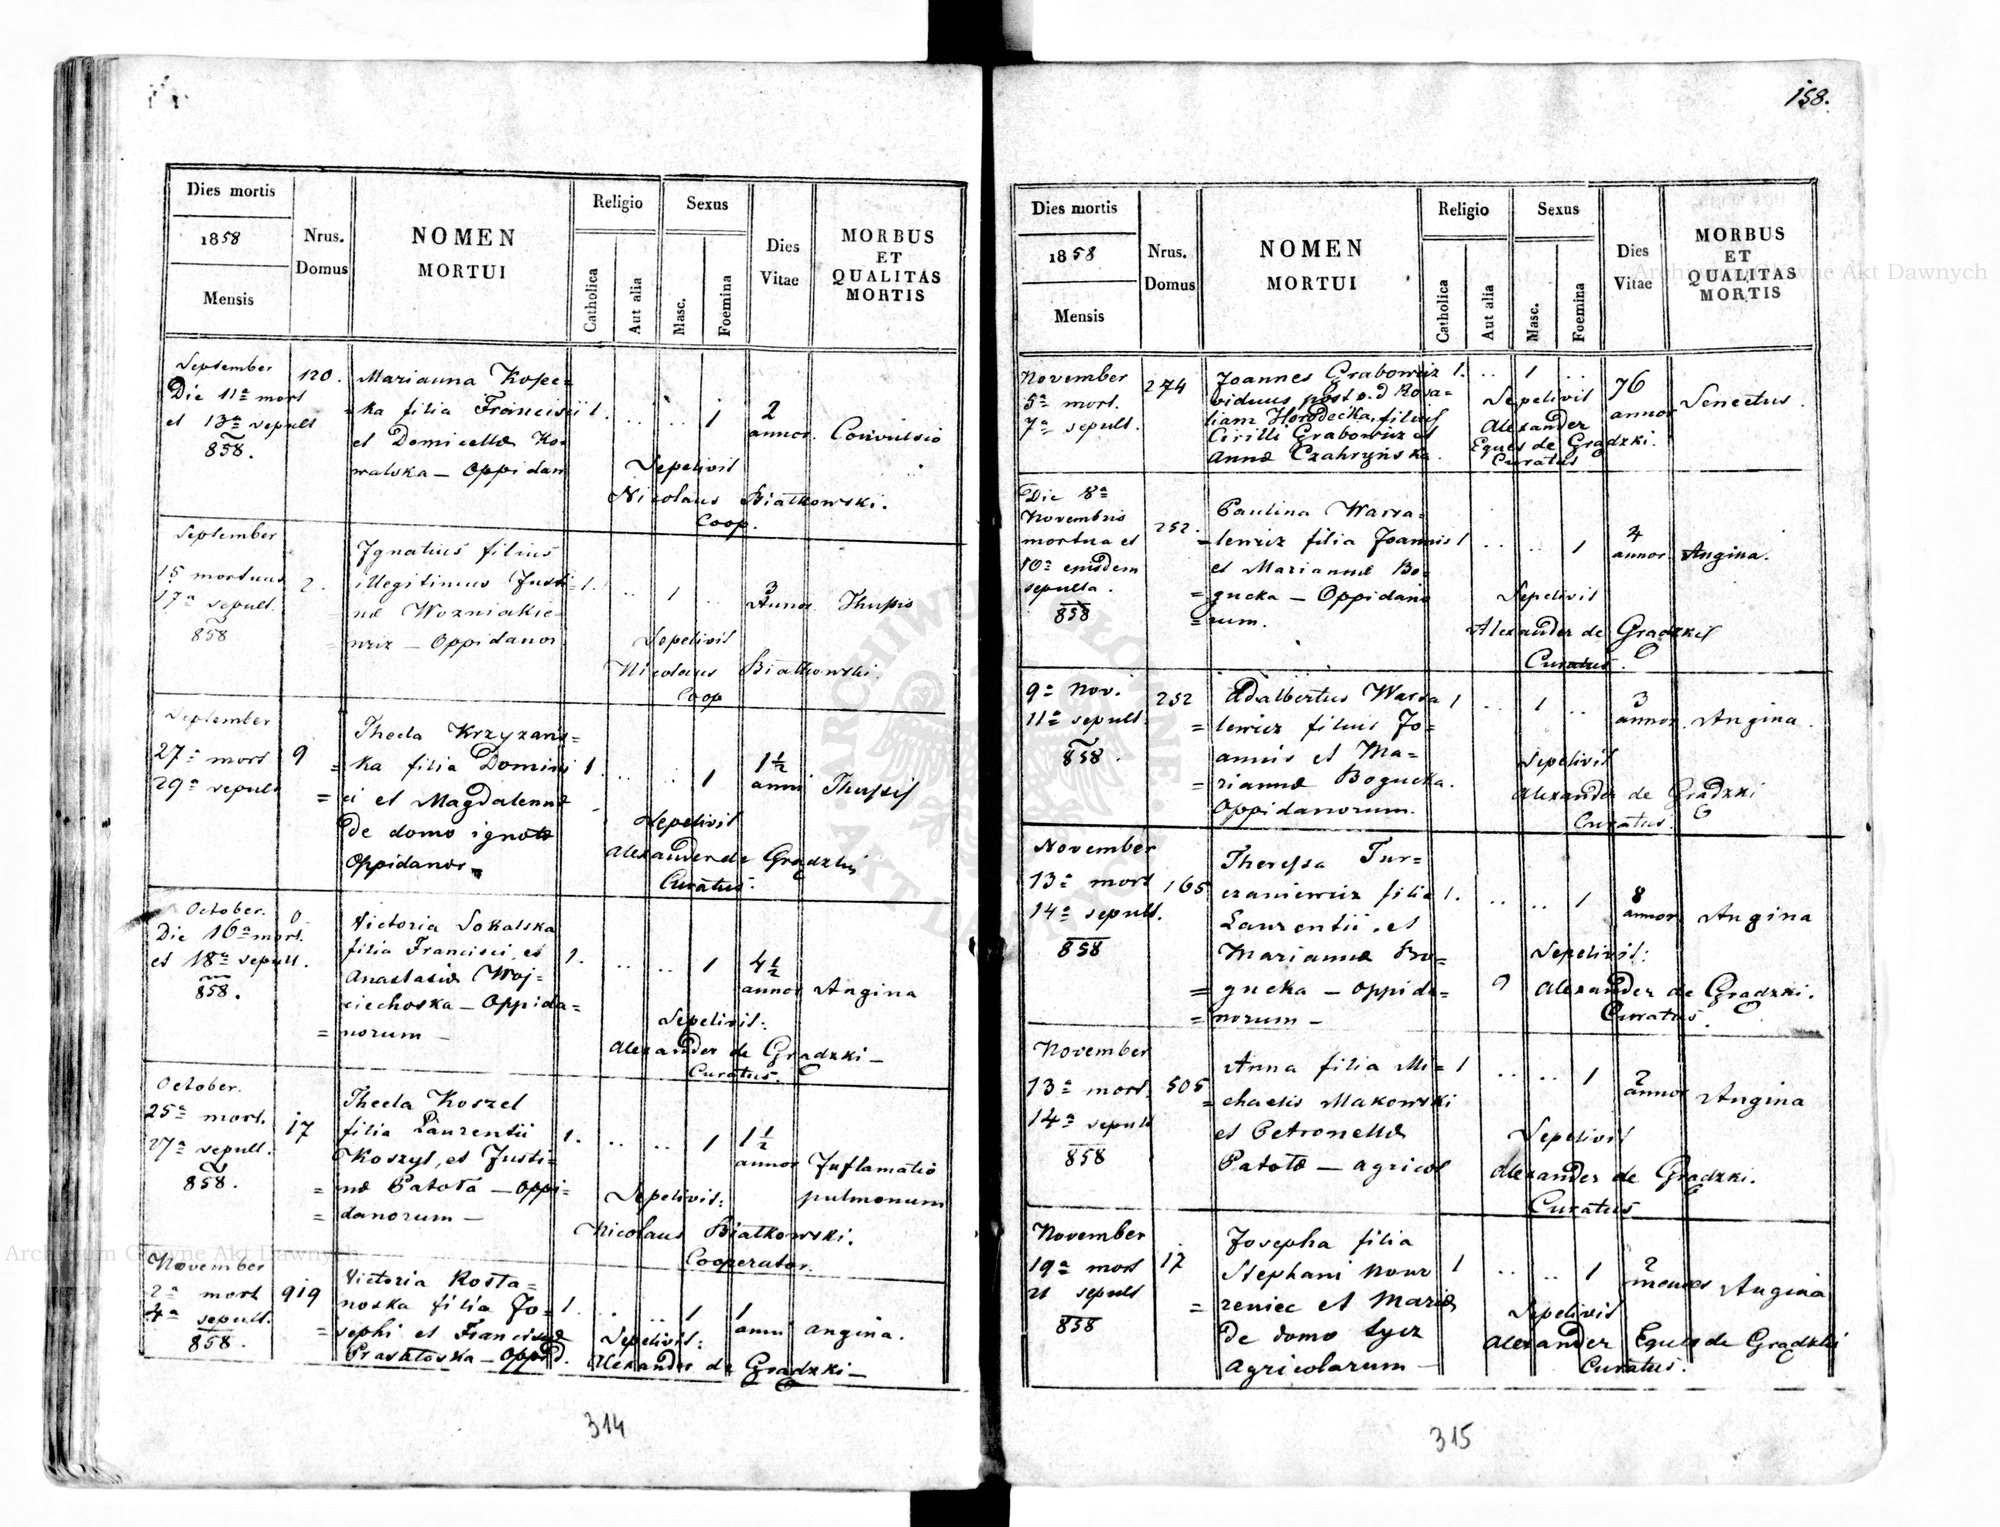 158.
Dies mortis
1858
Mensis
Nrus.
Domus
NOMEN
MORTUI
Religio
Catholica
Aut alia
Sexus
Masc.
Foemina
Dies
Vitae
MORBUS
ET
QUALITAS
MORTIS
September
Die 11a mort
et 13a sepult
858.
120.
Marianna Kopec=
=ka filia Francisci
et Domicellae Ko=
walska — Oppidan
1.
..
..
1
2
annor.
Convulsio
Sepelivit
Nicolaus Białkowski.
Coop.
September
15 mortuus
17a sepult.
858
2.
Ignatius filius
illegitimus Justi=
=nae Wozniakie=
=wicz — Oppidanor
1.
..
1
..
3
Annor
Thussis
Sepelivit
Nicolaus Białkowski.
Coop
September
27a mort
29a sepult
9
Thecla Krzyzans=
=ka filia Domini
=ci et Magdalennae
de domo ignotae
Oppidanor
1
..
..
1
1½
anni
Thussis
Sepelivit
Alexander de Gradzki
Curatus.
October.
Die 16a mort.
et 18a sepult.
858.
0.
Victoria Sokalska
filia Francisci, et
Anastasiae Woj=
ciechoska — Oppida=
=norum —
1.
..
..
1
4½
annor
Angina
Sepelivit:
Alexander de Gradzki —
Curatus.
October.
25a mort.
27a sepult.
858.
17
Thecla Koszel
filia Laurentii
Koszyl, et Justi=
=nae Patota — Oppi=
=danorum —
1.
..
..
1
1½
annor
Inflamatio
pulmonum
Sepelivit:
Nicolaus Białkowski.
Cooperator.
November
2a mort
4a sepult.
858.
919
Victoria Rosta=
noska filia Jo=
=sephi et Franciscae
— Oppid.
1.
..
..
1
1
anni
angina.
Sepelivit:
Alexander de Gradzki —
314
Dies mortis
1858
Mensis
Nrus.
Domus
NOMEN
MORTUI
Religio
Catholica
Aut alia
Sexus
Masc.
Foemina
Dies
Vitae
MORBUS
ET
QUALITAS
MORTIS
November
5a mort.
7a sepult.
274
Joannes Grabowicz
viduus post o.d Rosa=
liam Horodecka, filius
Cirilli Grabowicz et
Annae Czahryńska
1.
..
1
..
76
annor
Senectus.
Sepelivit
Alexander
Eques de Gradzki.
Curatus
Die 8a
Novembris
mortua et
10a ejusdem
sepulta.
858
252.
Paulina Warsa=
=lewicz filia Joannis
et Mariannae Bo=
=gucka — Oppidano
=rum.
1
..
..
1
4
annor
Angina.
Sepelivit
Alexander de Gradzki
Curatus.
9a Nov.
11a sepult
858.
252
Adalbertus Warsa
=lewicz filius Jo=
=annis et Ma=
=riannae Bogucka.
Oppidanorum.
1
..
1
..
3
annor
Angina.
Sepelivit
Alexander de Gradzki
Curatus.
November
13a mort
14a sepult.
858
165
Theressa Tur=
czaniewicz filia
Laurentii, et
Mariannae Bo=
=gucka — Oppida=
=norum —
1.
..
..
1
8
annor
Angina
Sepelivit:
Alexander de Gradzki.
Curatus.
November
13a mort.
14a sepult
858
505
Anna filia Mi=
=chaelis Makowski
et Petronellae
Patotae — agricol
1
..
..
1
2
annor
Angina
Sepelivit
Alexander de Gradzki.
Curatus
November
19a mort
21 sepult
858
17
Josepha filia
Stephani Nowr
=zeniec et Mariae
de domo Łycz
Agricolarum —
1
..
..
1
2
menses
Angina
Sepelivit
Alexander Eques de Gradzki
Curatus.
315
Archiwum Główne Akt Dawnych
Archiwum Główne Akt Dawnych
ARCHIWUM GŁÓWNE
AKT DAWNYCH